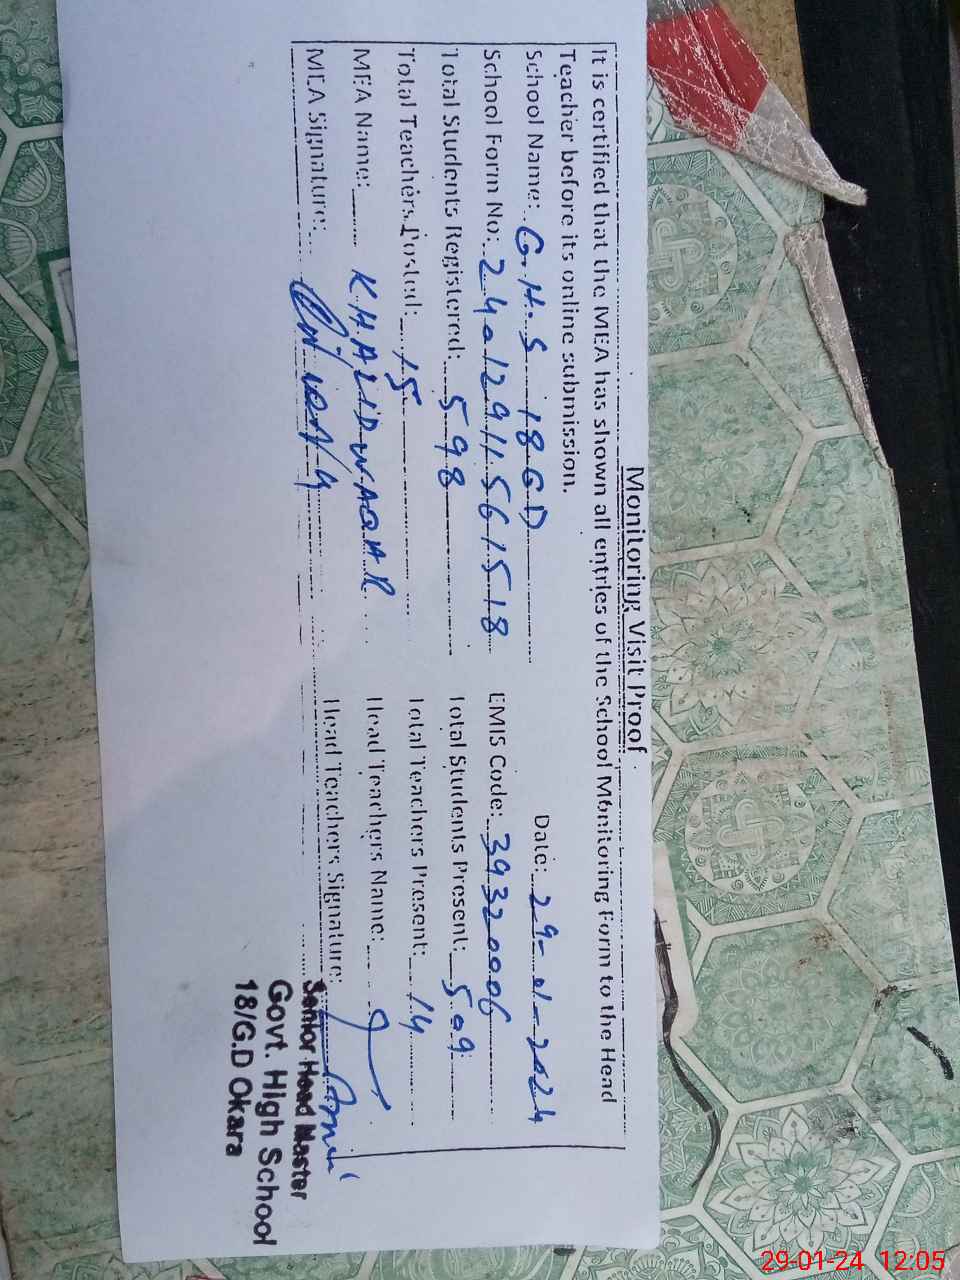 Monitoring Visit Proof
It is certified that the MEA has shown all entries of the School Monitoring Form to the Head
Teacher before its online submission.
School Name: G.H.S 18 GD Date: 29-01-2024
School Form No: 24012911561518 EMIS Code: 39320006
Total Students Registered: 598 Total Students Present: 509
Total Teachers Posted: 15 Total Teachers Present: 14
MEA Name: KHALID WAQAR Head Teachers Name:
MEA Signature: Head Teachers Signature:
Senior Head Master
Govt. High School
18/G.D Okara
29-01-24 12:05